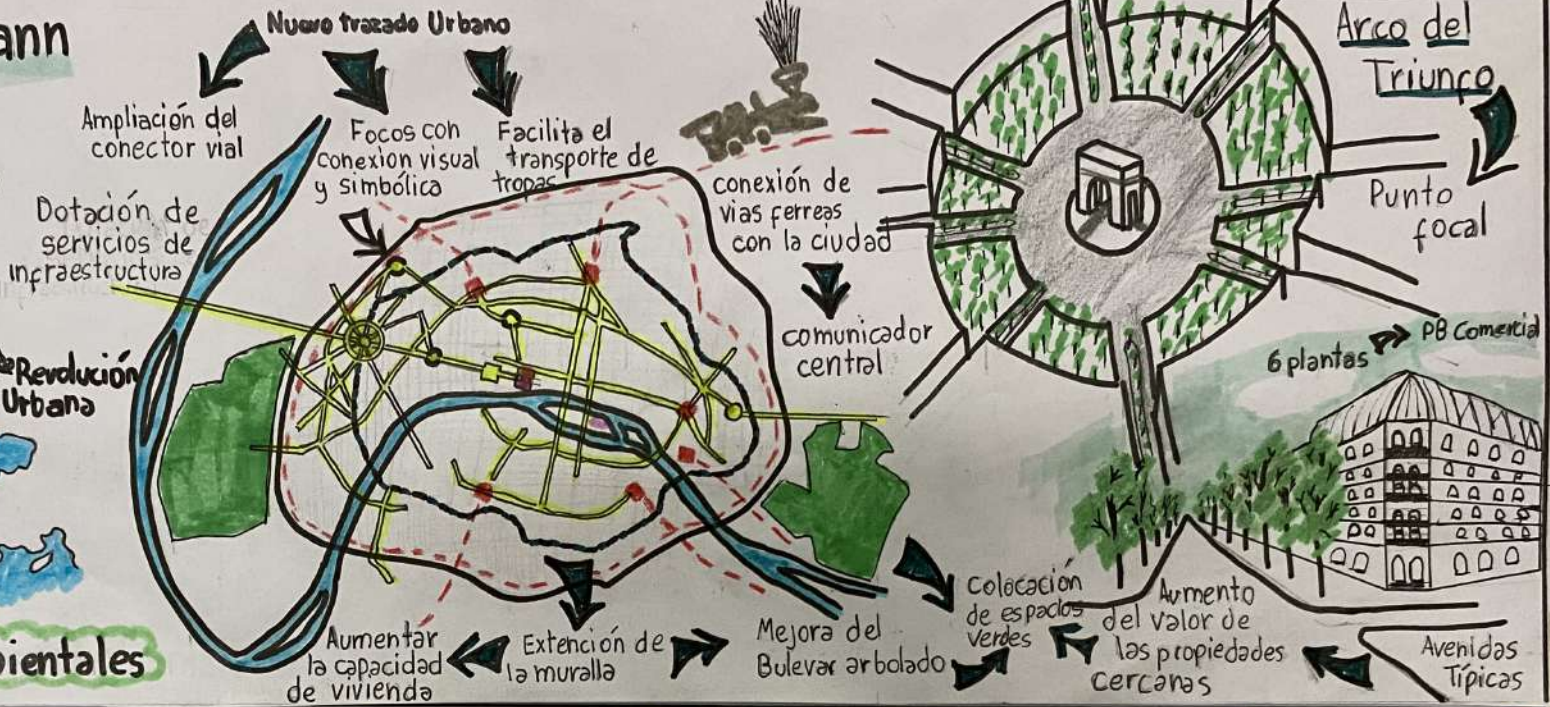 ann
Nuevo trazado Urbano
Ampliación del
conector vial
Focos con
conexion visual
y simbólica
Facilita el
transporte de
tropas
Dotación de
servicios de
infraestructura
conexión de
vias ferreas
con la ciudad
comunicador
central
Arco del
Triunfo
Punto
focal
6 plantas
PB Comercial
Revolución
Urbana
bientales
Aumentar
la capacidad
de vivienda
Extención de
la muralla
Mejora del
Bulevar arbolado
Colocación
de espacios
verdes
Aumento
del valor de
las propiedades
cercanas
Avenidas
Típicas